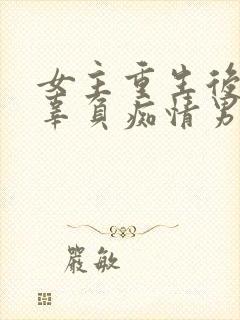 女主重生後
辜負痴情男
嚴敏